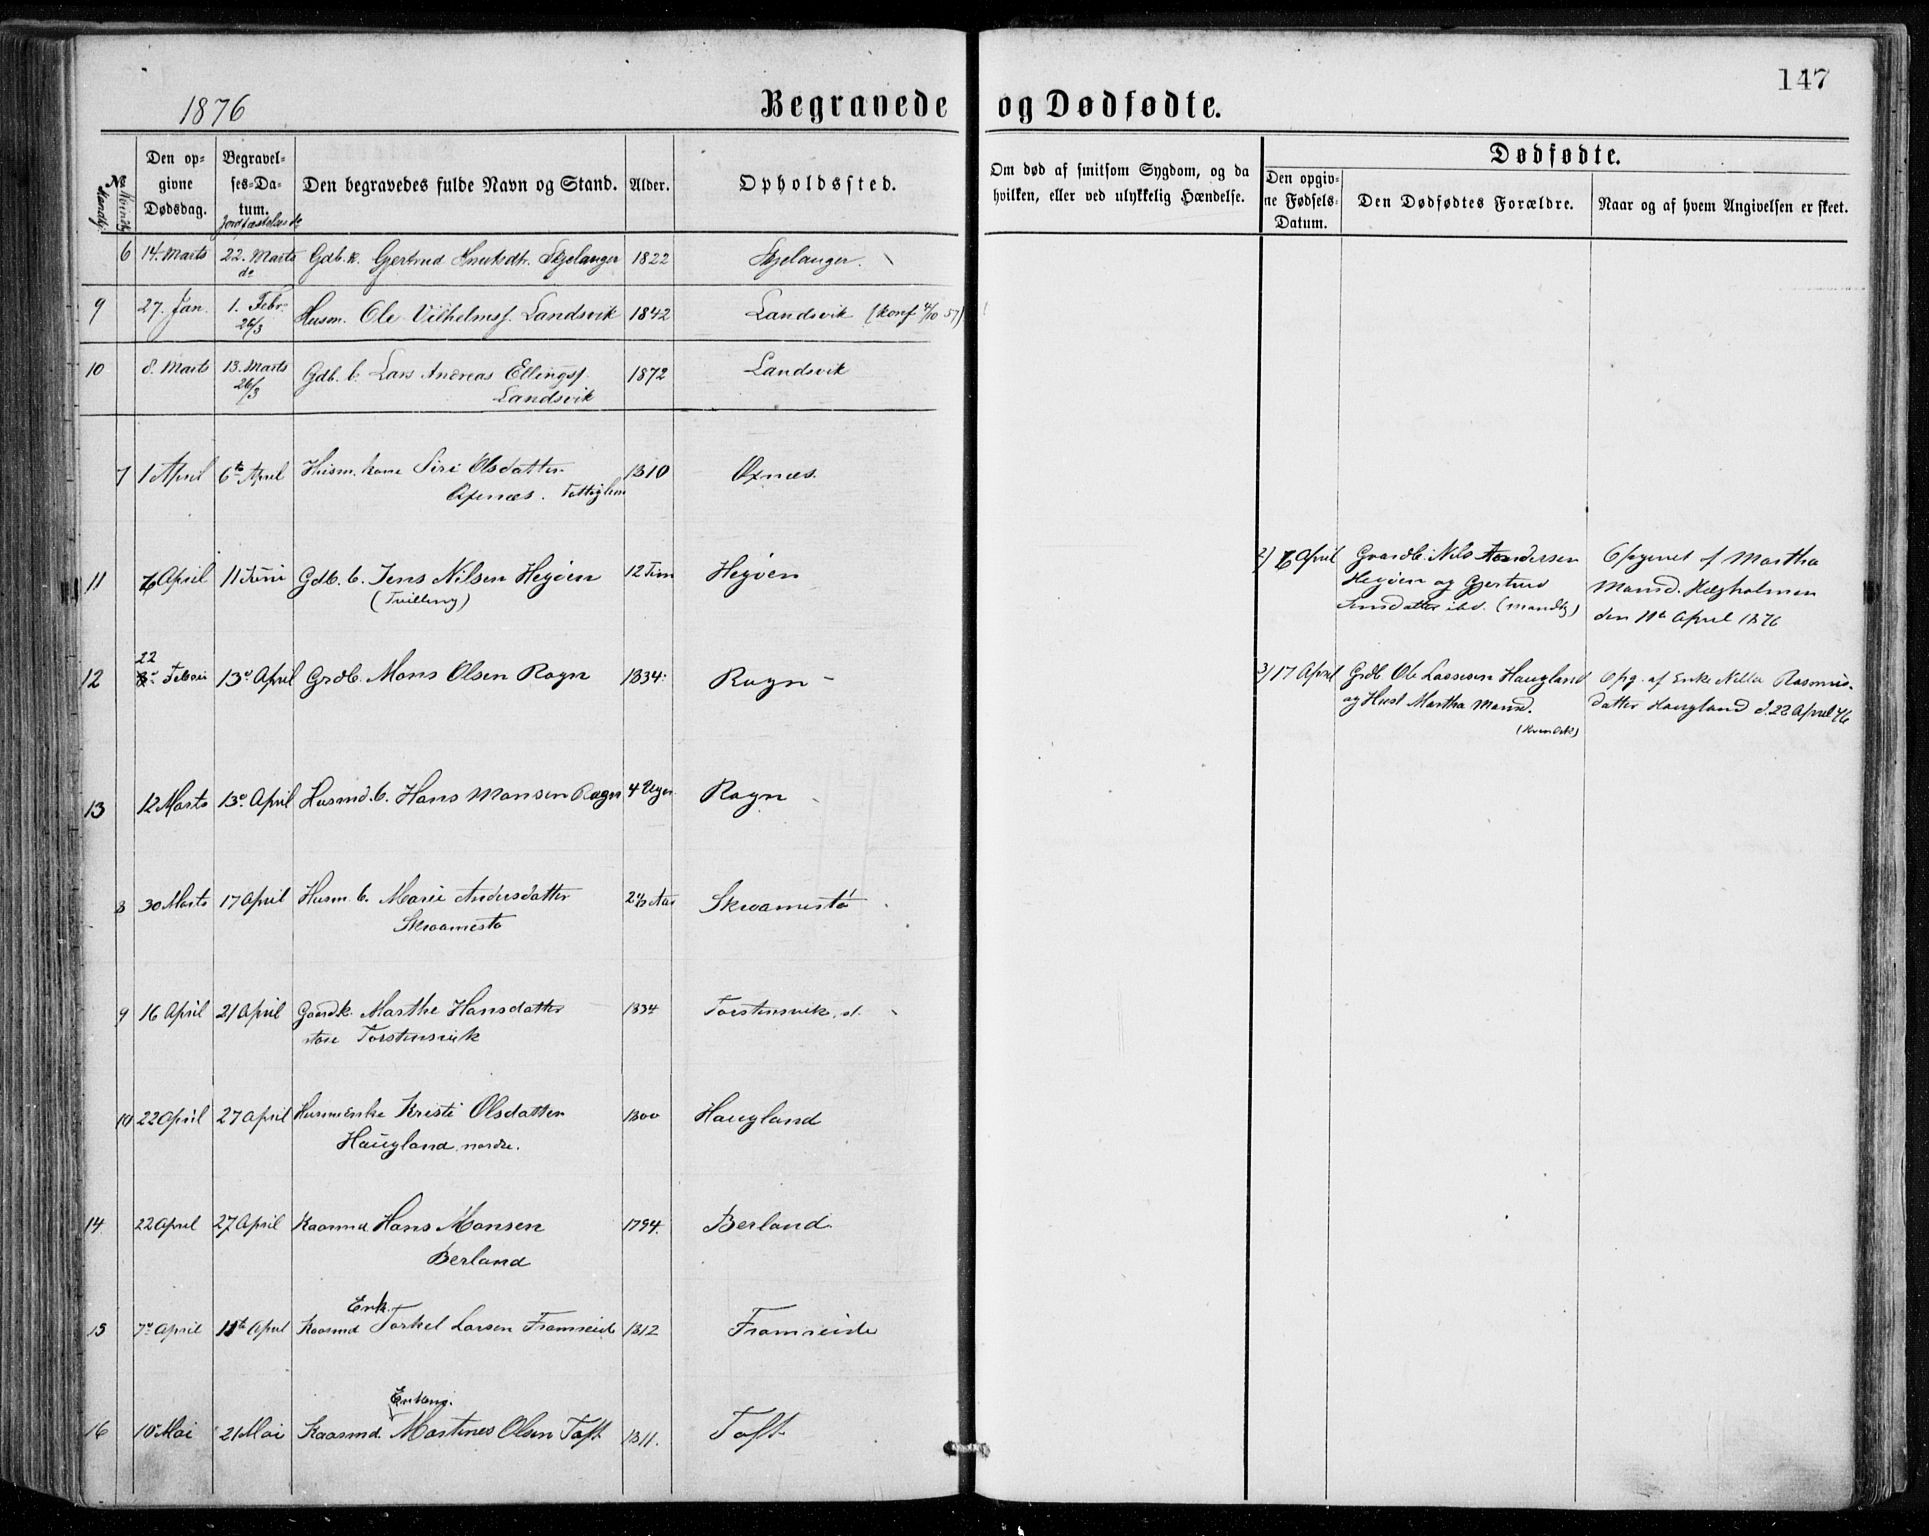 147
1876
Begravede og Dødfødte.
No
Mandk.
Kvindk.
Den opgivne Dødsdag.
Begravelses-Datum.
Jordfæstelse
Den begravedes fulde Navn og Stand.
Alder.
Opholdssted.
Om død af smitsom Sygdom, og da hvilken, eller ved ulykkelig Hændelse.
Dødfødte.
Den opgivne Fødsels-Datum.
Den Dødfødtes Forældre.
Naar og af hvem Angivelsen er skeet.
6 14. Marts 22. Marts Gdb. k. Gjertrud Knutsdtr. Skjelanger 1822 Skjelanger.
do
9 27. Jan. 1. Febr. Husm. Ole Vilhelmsf. Landsvik 1842 Landsvik (Konf 4/10 57)
26/3
10 8. Marts 13. Marts Gdb. b. Lars Andreas Ellingsf. 1872 Landsvik
26/3 Landsvik
7 1 April 6te April Husm. kone Siri Olsdatter 1810 Oxnæs.
Oxnæs. Fattiglem
11 6 April 11 Juni Gdb. b. Jens Nilsen Hegøen 12 Tim Hegøen
(Tvilling)
2) 6 April Gaardb. Nils Andersen
Hegøen og Gjertrud
Jensdatter ibd. (mandkj)
Opgivet af Martha
Monsd. Hægholmen
den 11te April 1876
22
12 Februar 13de April Grdb. Mons Olsen Rogn 1834. Rogn
3) 17 April Grdb Ole Lassesen Haugland
og Hust Martha Monsd.
(Kvindek)
Opg. af Enke Nilla Rasmus-
datter Haugland d. 22 April 76
13 12 Marts 13de April Husmd. b. Hans Monsen Rogn 4 Uger Rogn
8 30 Marts 17 April Husm. b. Marie Andersdatter Aar Skroamestø
Skroamestø
9 16 April 21 April Gaardk. Marthe Hansdatter 1834 Torstensvik
store Torstensvik
10 22 April 27 April Husmenke Kristi Olsdatter 1800 Haugland
Haugland nordre.
14 22 April 27 April Kaarmd Hans Monsen 1794. Berland
Berland
Enk.
15 7de April 11te April Kaarmd Torkel Larsen Fromreide 1812 Fromreide
Enkem.
16 10 Mai 21 Mai Kaarmd. Martines Olsen Toft 1811. Toft